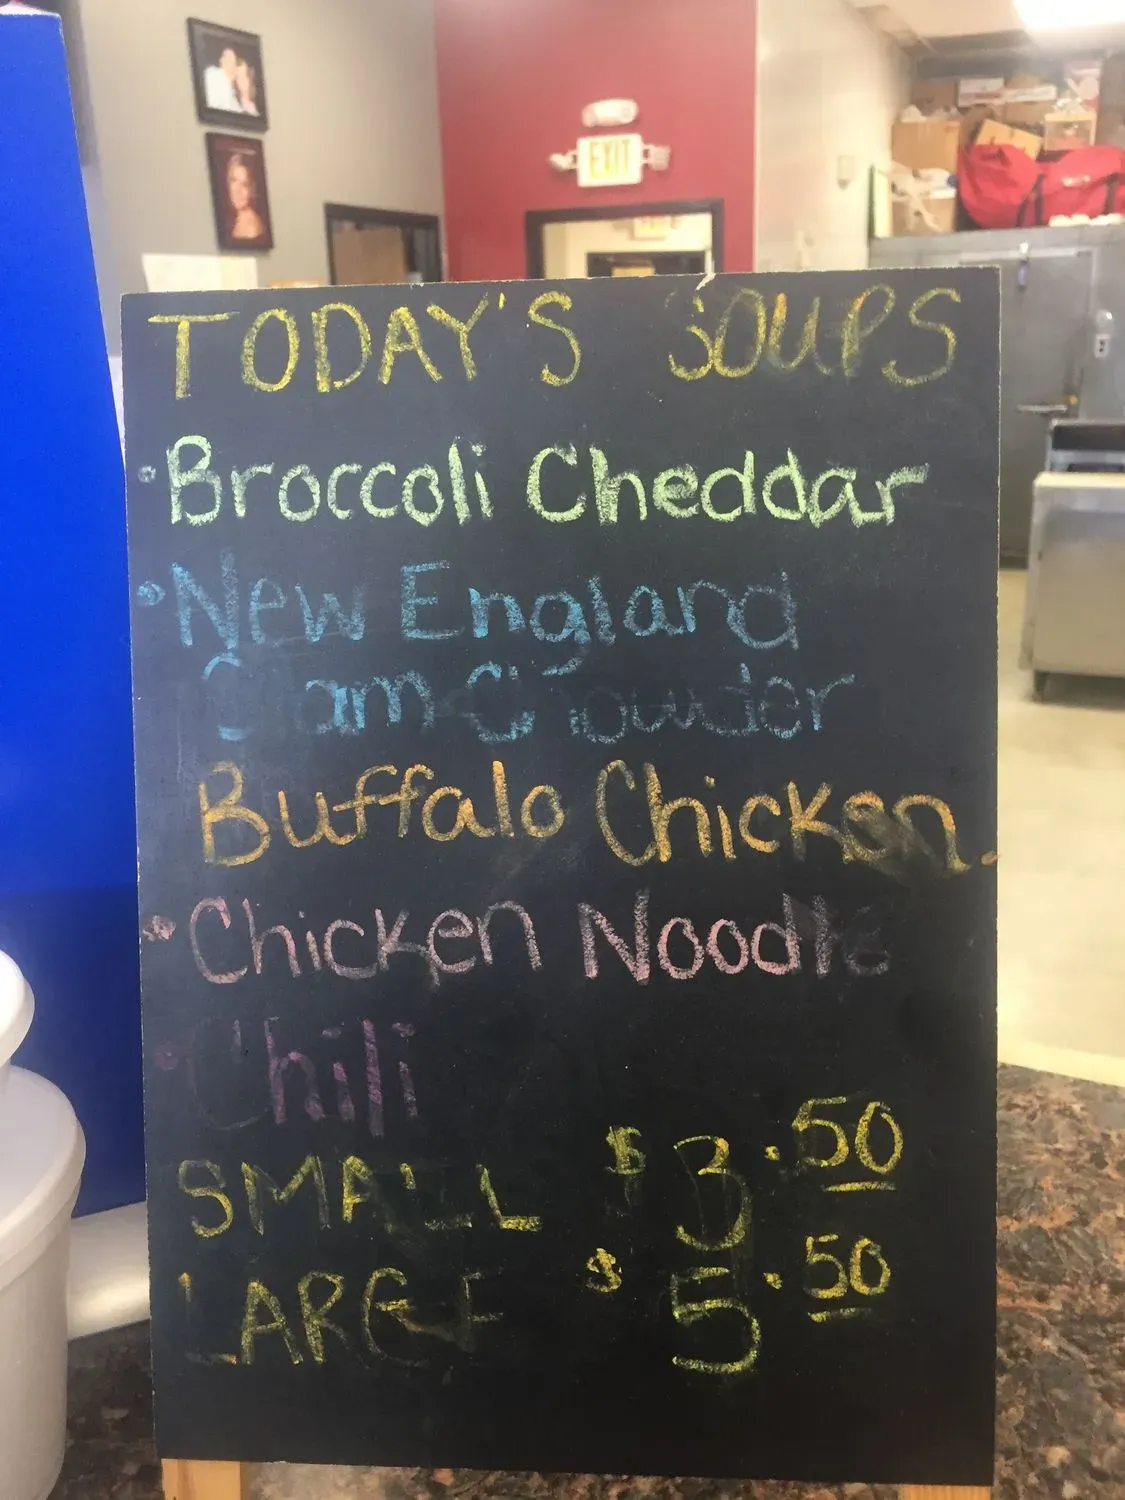 EXIT
TODAY'S SOUPS
• Broccoli Cheddar
• New England
Clam Chowder
Buffalo Chicken.
• Chicken Noodle
• Chili
SMALL $3.50
LARGE $5.50